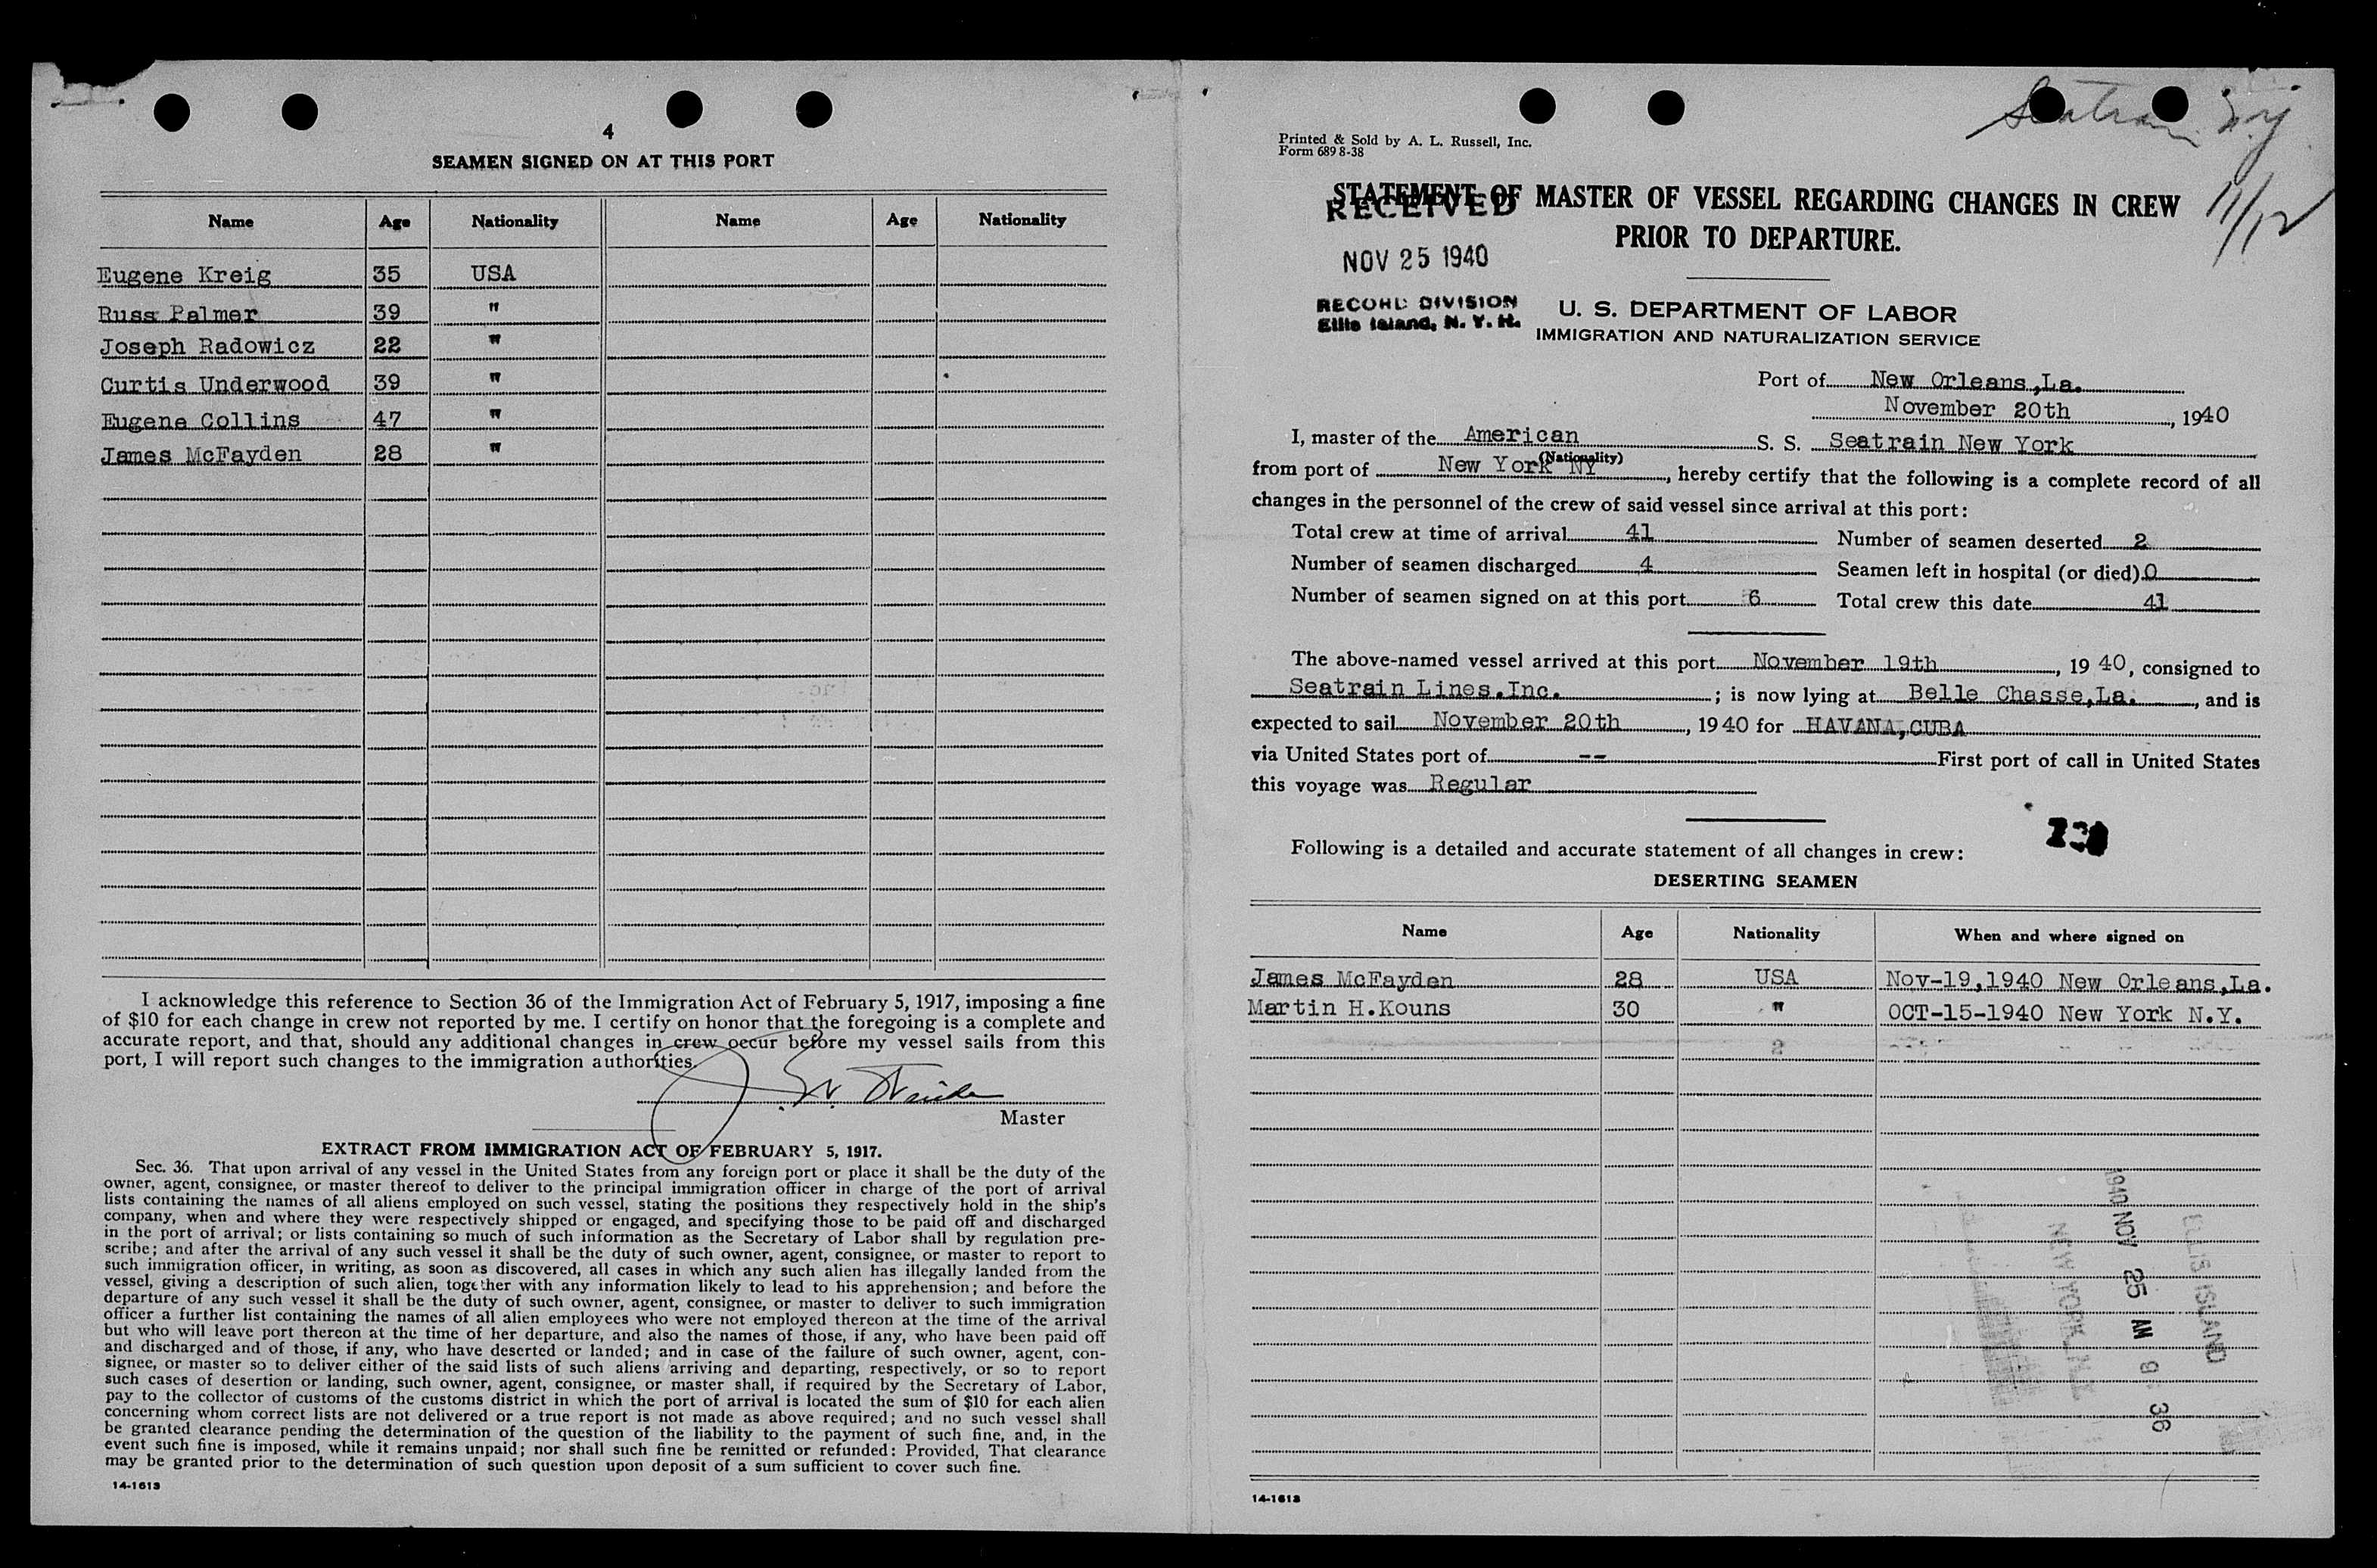 4
SEAMEN SIGNED ON AT THIS PORT
Name Age Nationality Name Age Nationality
Eugene Kreig 35 USA
Russ Palmer 39 "
Joseph Radowicz 22 "
Curtis Underwood 39 "
Eugene Collins 47 "
James McFayden 28 "
I acknowledge this reference to Section 36 of the Immigration Act of February 5, 1917, imposing a fine
of $10 for each change in crew not reported by me. I certify on honor that the foregoing is a complete and
accurate report, and that, should any additional changes in crew occur before my vessel sails from this
port, I will report such changes to the immigration authorities.
Master
EXTRACT FROM IMMIGRATION ACT OF FEBRUARY 5, 1917.
Sec. 36. That upon arrival of any vessel in the United States from any foreign port or place it shall be the duty of the
owner, agent, consignee, or master thereof to deliver to the principal immigration officer in charge of the port of arrival
lists containing the names of all aliens employed on such vessel, stating the positions they respectively hold in the ship's
company, when and where they were respectively shipped or engaged, and specifying those to be paid off and discharged
in the port of arrival; or lists containing so much of such information as the Secretary of Labor shall by regulation pre-
scribe; and after the arrival of any such vessel it shall be the duty of such owner, agent, consignee, or master to report to
such immigration officer, in writing, as soon as discovered, all cases in which any such alien has illegally landed from the
vessel, giving a description of such alien, together with any information likely to lead to his apprehension; and before the
departure of any such vessel it shall be the duty of such owner, agent, consignee, or master to deliver to such immigration
officer a further list containing the names of all alien employees who were not employed thereon at the time of the arrival
but who will leave port thereon at the time of her departure, and also the names of those, if any, who have been paid off
and discharged and of those, if any, who have deserted or landed; and in case of the failure of such owner, agent, con-
signee, or master so to deliver either of the said lists of such aliens arriving and departing, respectively, or so to report
such cases of desertion or landing, such owner, agent, consignee, or master shall, if required by the Secretary of Labor,
pay to the collector of customs of the customs district in which the port of arrival is located the sum of $10 for each alien
concerning whom correct lists are not delivered or a true report is not made as above required; and no such vessel shall
be granted clearance pending the determination of the question of the liability to the payment of such fine, and, in the
event such fine is imposed, while it remains unpaid; nor shall such fine be remitted or refunded: Provided, That clearance
may be granted prior to the determination of such question upon deposit of a sum sufficient to cover such fine.
14-1613
Seatrain N.Y
11/12
Printed & Sold by A. L. Russell, Inc.
Form 689 8-38
STATEMENT OF MASTER OF VESSEL REGARDING CHANGES IN CREW
PRIOR TO DEPARTURE.
RECEIVED
NOV 25 1940
RECORD DIVISION
Ellis Island, N. Y. H.
U. S. DEPARTMENT OF LABOR
IMMIGRATION AND NATURALIZATION SERVICE
Port of New Orleans,La.
November 20th, 1940
I, master of the American S. S. Seatrain New York
(Nationality)
from port of New York NY, hereby certify that the following is a complete record of all
changes in the personnel of the crew of said vessel since arrival at this port:
Total crew at time of arrival 41 Number of seamen deserted 2
Number of seamen discharged 4 Seamen left in hospital (or died) 0
Number of seamen signed on at this port 6 Total crew this date 41
The above-named vessel arrived at this port November 19th, 1940, consigned to
Seatrain Lines.Inc.; is now lying at Belle Chasse,La., and is
expected to sail November 20th, 1940 for HAVANA,CUBA
via United States port of -- First port of call in United States
this voyage was Regular
Following is a detailed and accurate statement of all changes in crew:
DESERTING SEAMEN
Name Age Nationality When and where signed on
James McFayden 28 USA Nov-19,1940 New Orleans,La.
Martin H.Kouns 30 " OCT-15-1940 New York N.Y.
1940 NOV 25 AM 9 36
ELLIS ISLAND
NEW YORK
14-1613